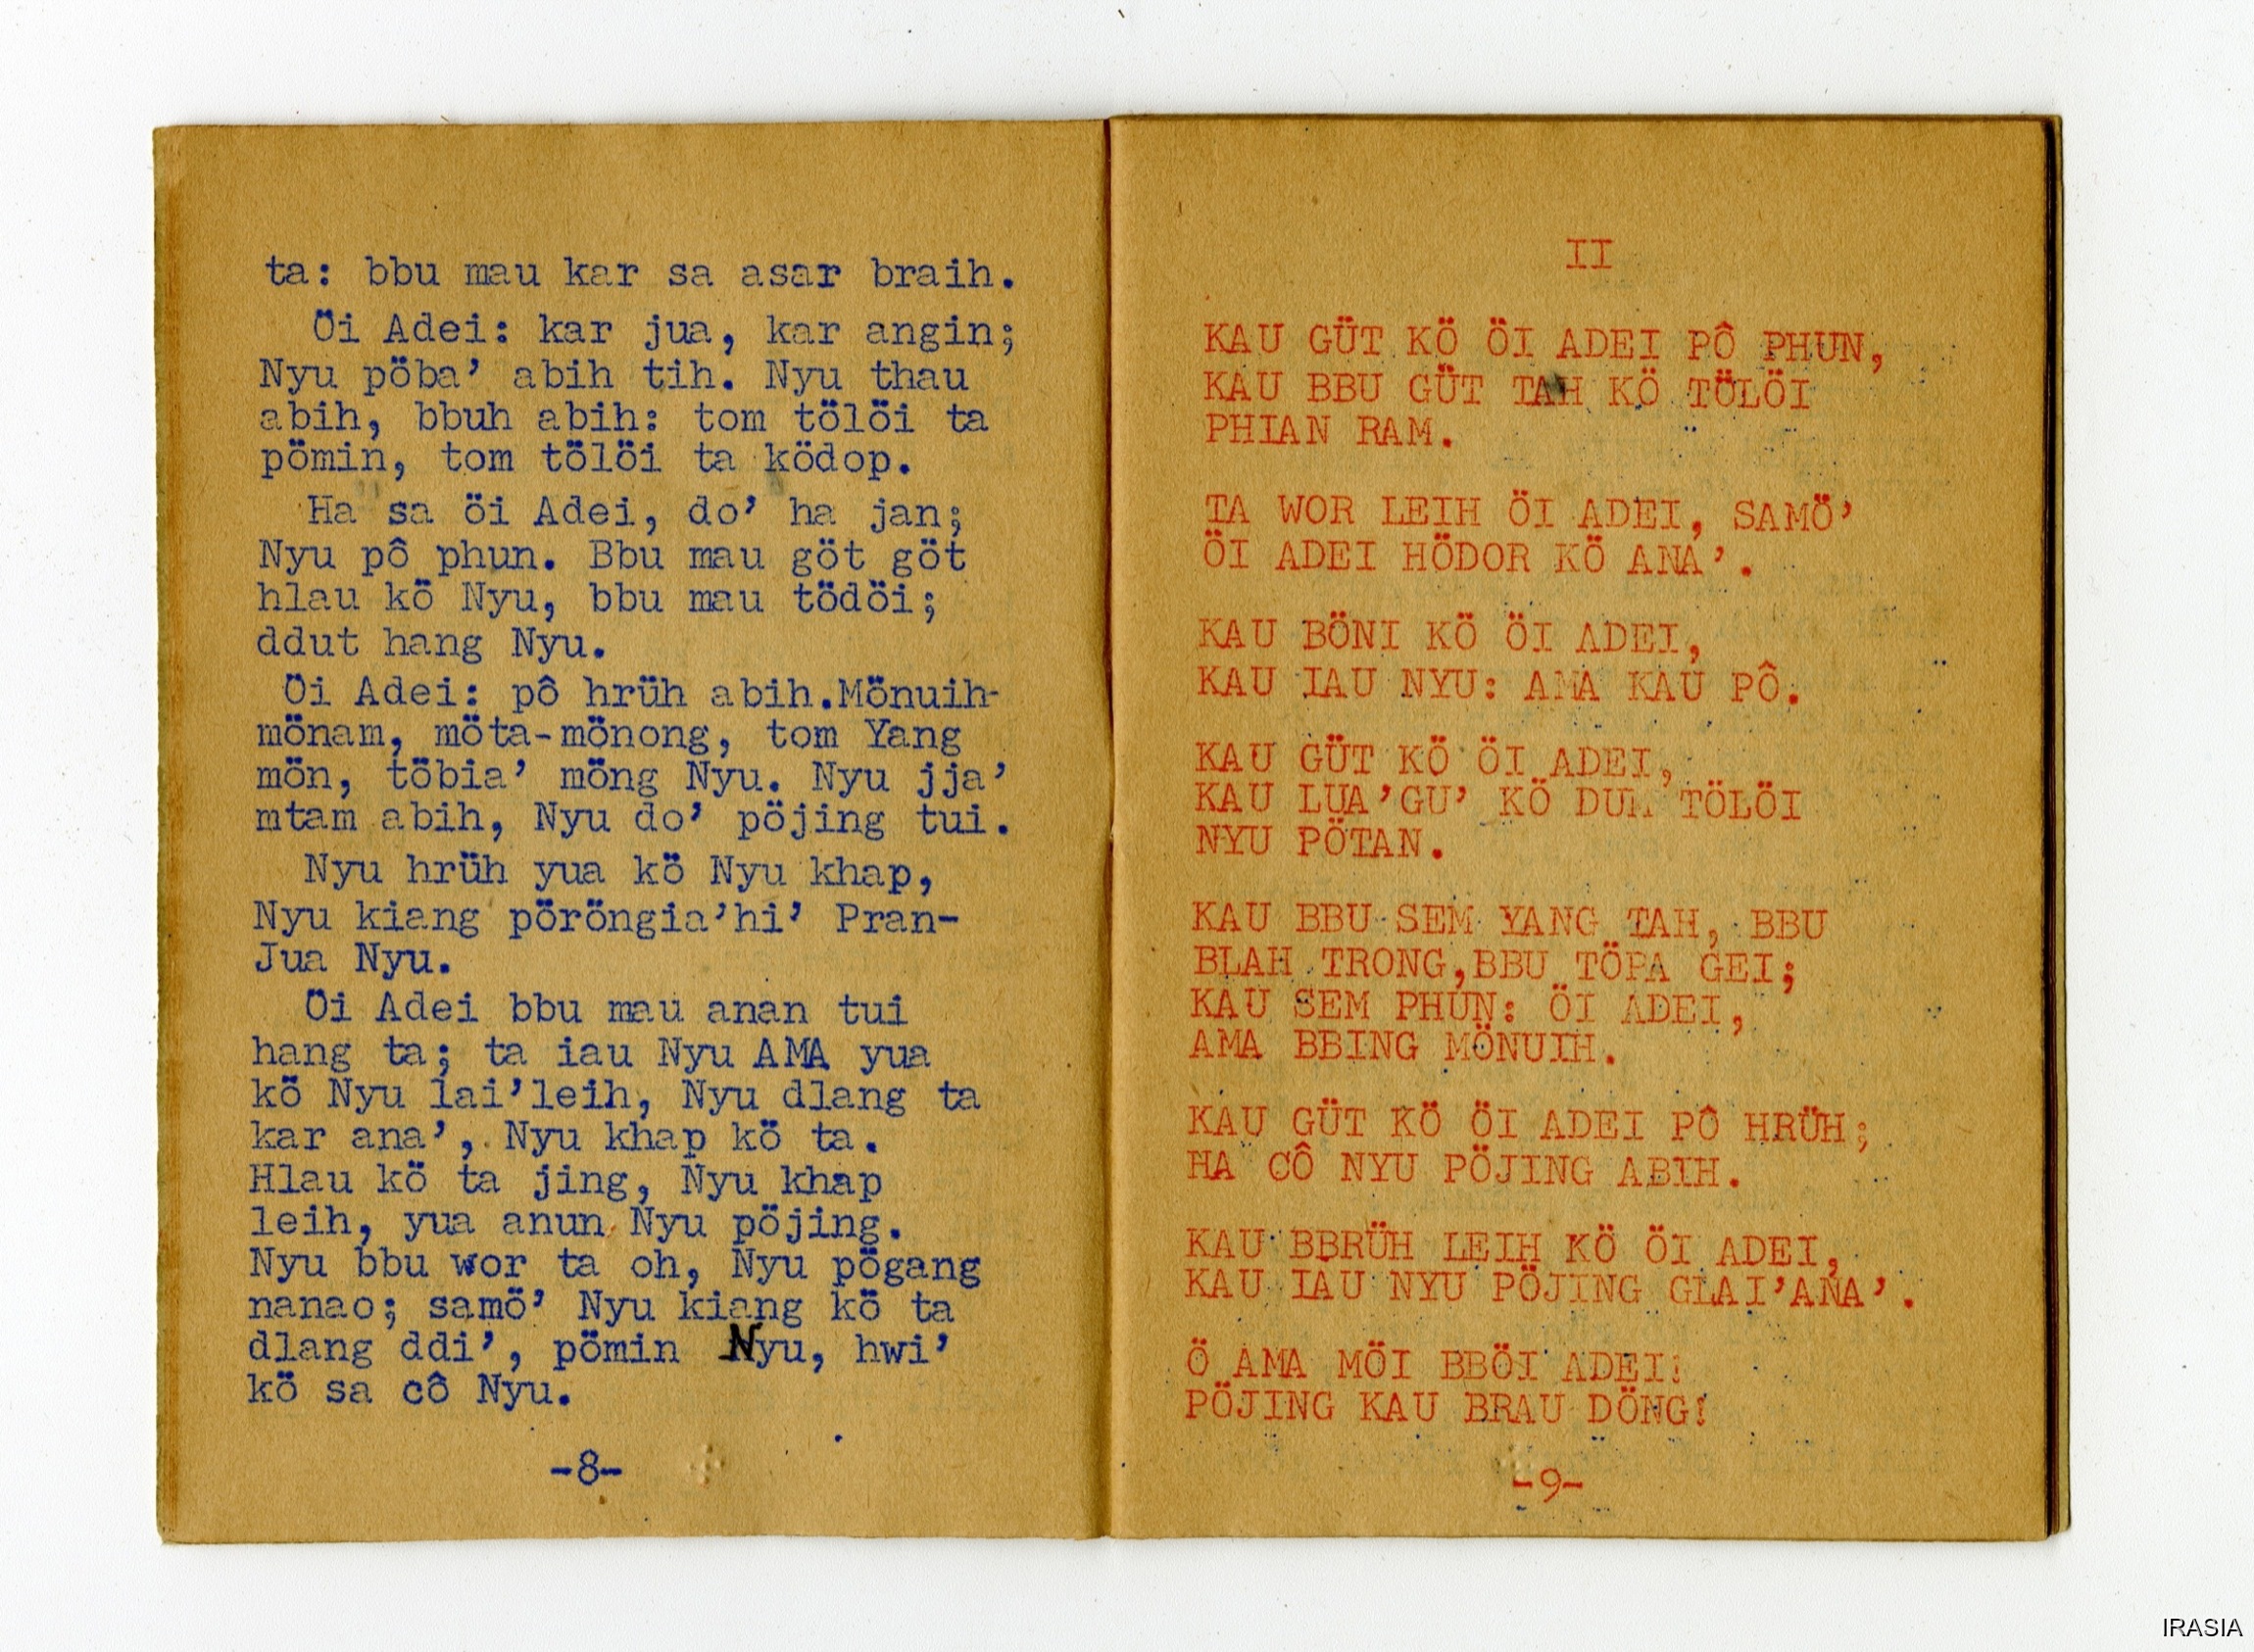 ta: bbu mau kar sa asar braih.
Öi Adei: kar jua, kar angin;
Nyu pöba’ abih tih. Nyu thau
abih, bbuh abih: tom tölöi ta
pömin, tom tölöi ta ködop.
Ha sa öi Adei, do’ ha jan;
Nyu pô phun. Bbu mau göt göt
hlau kö Nyu, bbu mau tödöi;
ddut hang Nyu.
Öi Adei: pô hrüh abih.Mönuih-
mönam, möta-mönong, tom Yang
mön, töbia’ möng Nyu. Nyu jja’
mtam abih, Nyu do’ pöjing tui.
Nyu hrüh yua kö Nyu khap,
Nyu kiang pöröngia’hi’ Pran-
Jua Nyu.
Öi Adei bbu mau anan tui
hang ta; ta iau Nyu AMA yua
kö Nyu lai’leih, Nyu dlang ta
kar ana’, Nyu khap kö ta.
Hlau kö ta jing, Nyu khap
leih, yua anun Nyu pöjing.
Nyu bbu wor ta oh, Nyu pögang
nanao; samö’ Nyu kiang kö ta
dlang ddi’, pömin Nyu, hwi’
kö sa cô Nyu.
-8-
II
KAU GÜT KÖ ÖI ADEI PÔ PHUN,
KAU BBU GÜT TAH KÖ TÖLÖI
PHIAN RAM.
TA WOR LEIH ÖI ADEI, SAMÖ’
ÖI ADEI HÖDOR KÖ ANA’.
KAU BÖNI KÖ ÖI ADEI,
KAU IAU NYU: AMA KAU PÔ.
KAU GÜT KÖ ÖI ADEI,
KAU LUA’GU’ KÖ DUM TÖLÖI
NYU PÖTAN.
KAU BBU SEM YANG TAH, BBU
BLAH TRONG,BBU TÖPA GEI;
KAU SEM PHUN: ÖI ADEI,
AMA BBING MÖNUIH.
KAU GÜT KÖ ÖI ADEI PÔ HRÜH;
HA CÔ NYU PÖJING ABIH.
KAU BBRÜH LEIH KÖ ÖI ADEI,
KAU IAU NYU PÖJING GLAI’ANA’.
Ö AMA MÖI BBÖI ADEI!
PÖJING KAU BRAU DÖNG!
-9-
IRASIA